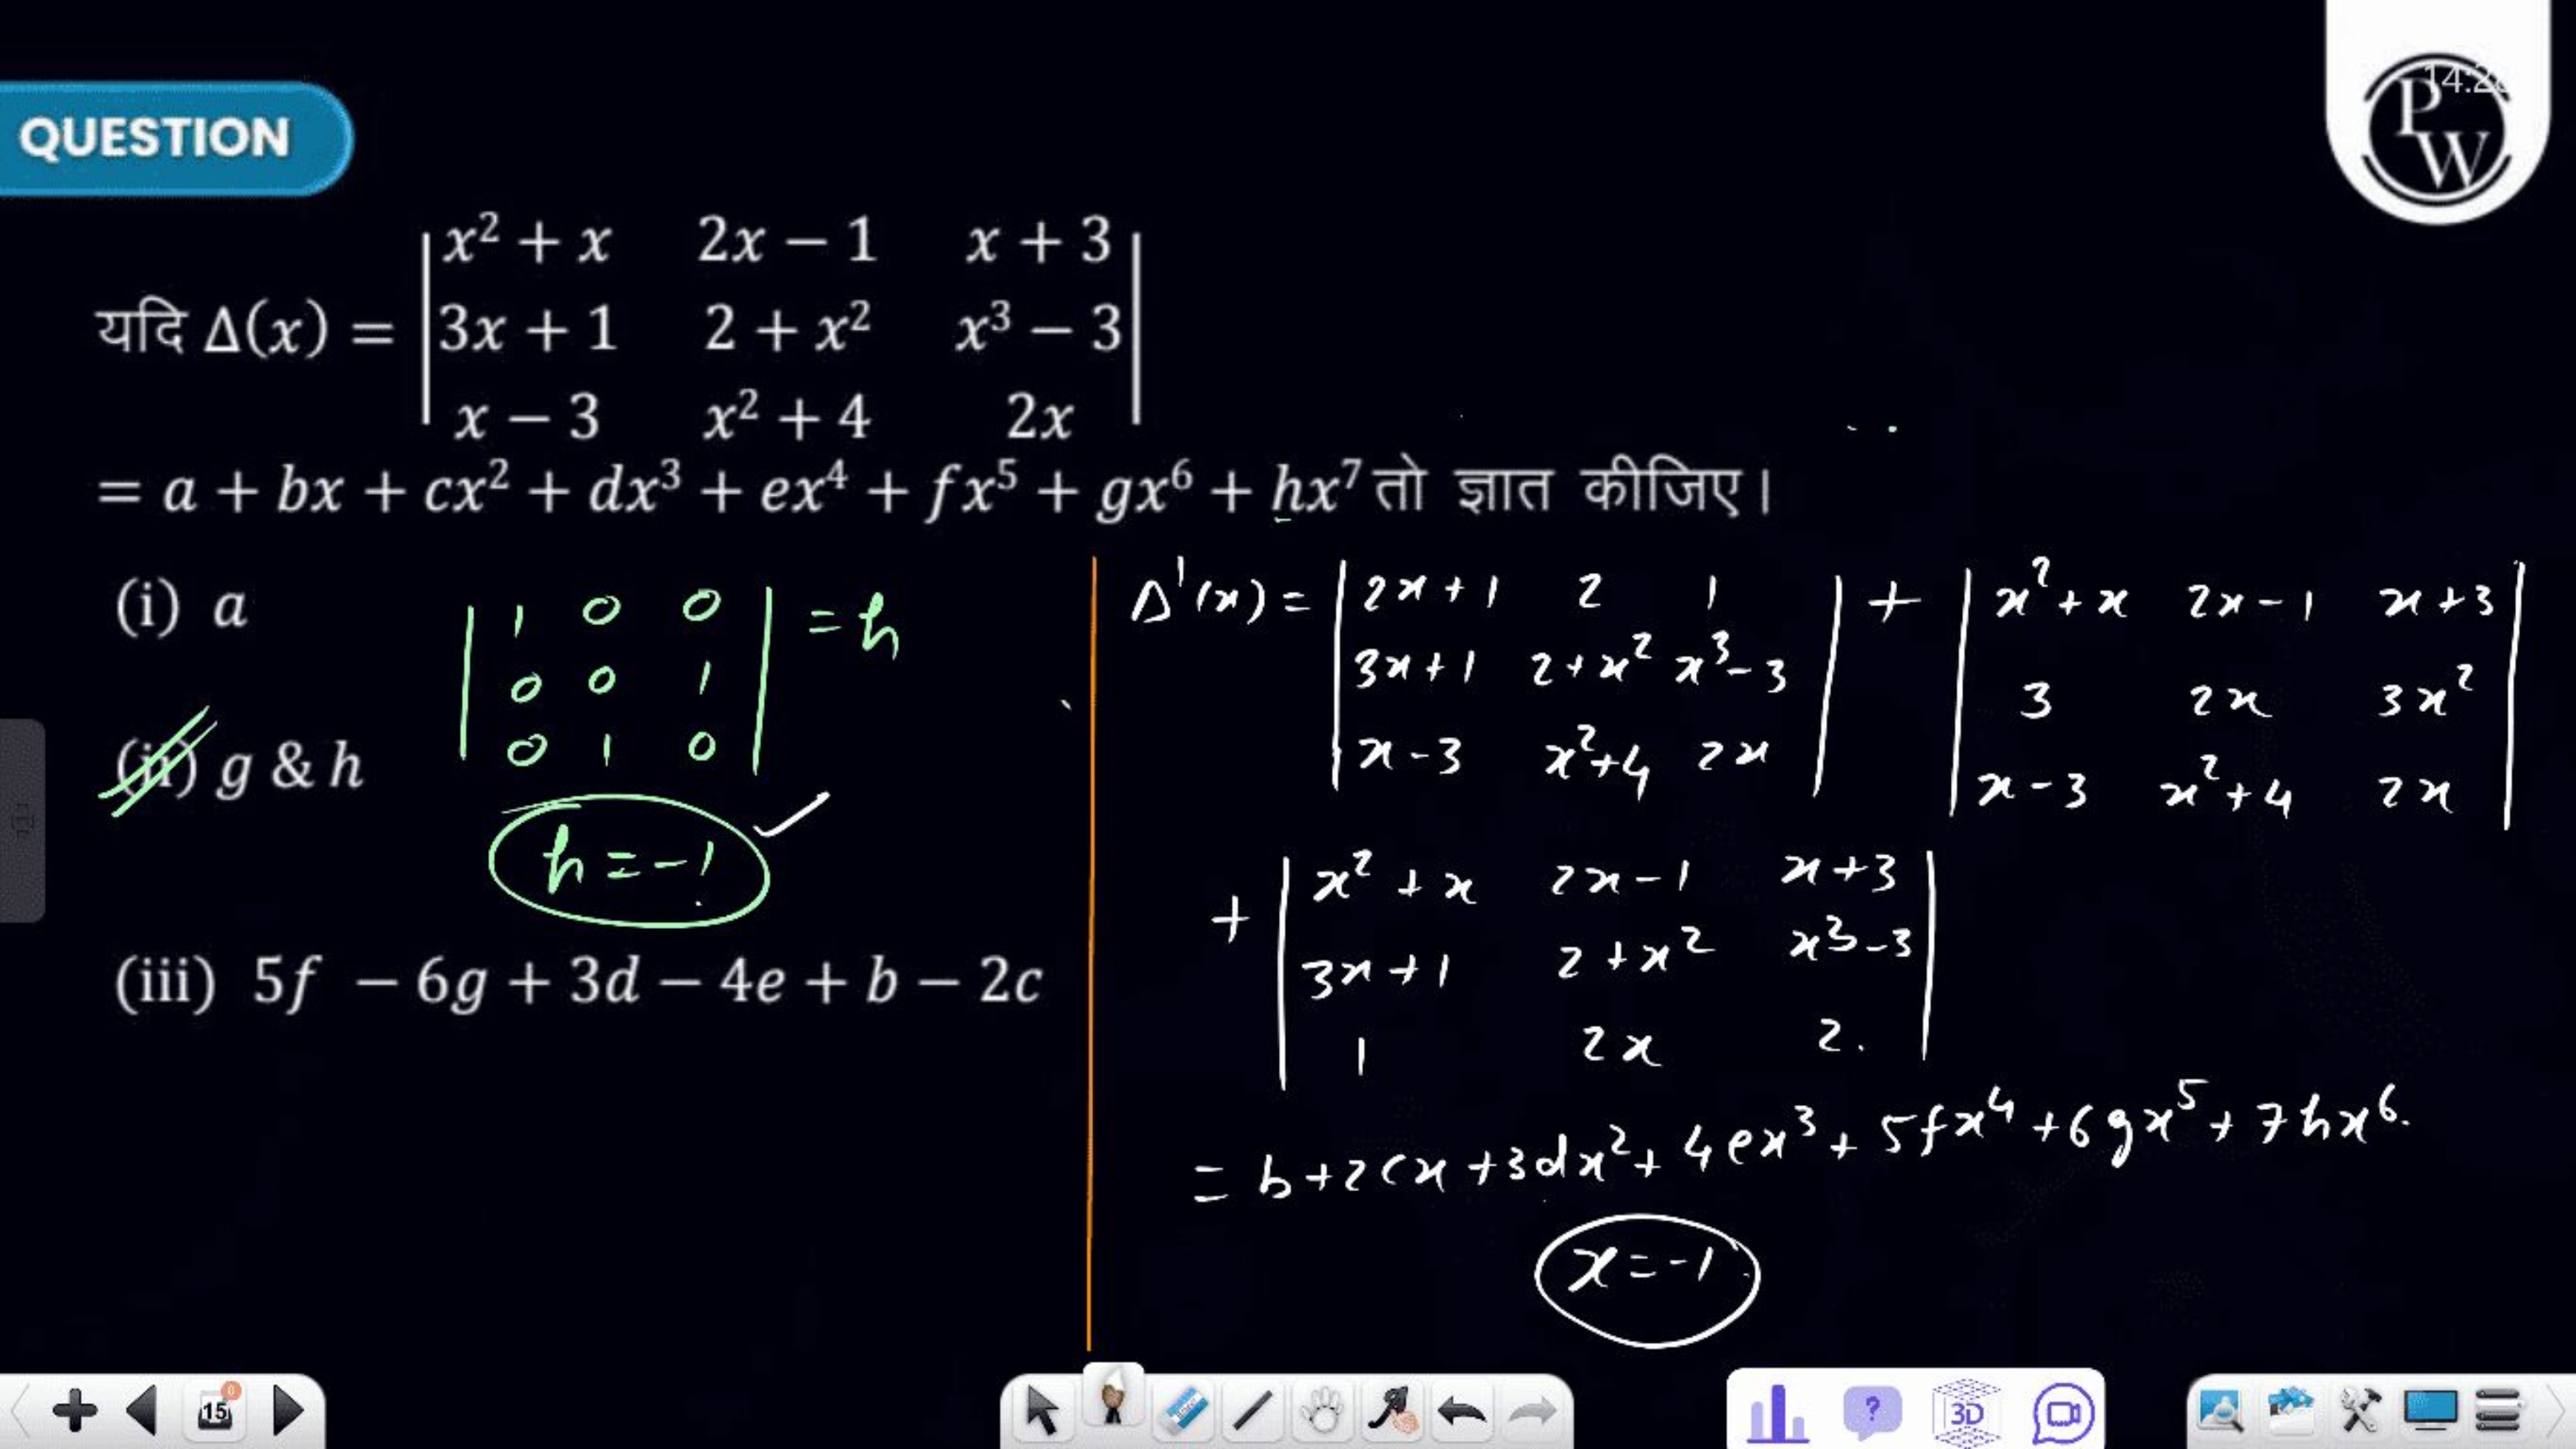 14:2
PW
QUESTION
यदि Δ(x) = | x² + x 2x − 1 x + 3 |
| 3x + 1 2 + x² x³ − 3 |
| x − 3 x² + 4 2x |
= a + bx + cx² + dx³ + ex⁴ + fx⁵ + gx⁶ + hx⁷ तो ज्ञात कीजिए।
(i) a
| 1 0 0 | = h
| 0 0 1 |
| 0 1 0 |
(ii) g & h
h = -1
(iii) 5f − 6g + 3d − 4e + b − 2c
Δ'(x) = | 2x+1 2 1 | + | x²+x 2x-1 x+3 |
| 3x+1 2+x² x³-3 | | 3 2x 3x² |
| x-3 x²+4 2x | | x-3 x²+4 2x |
+ | x²+x 2x-1 x+3 |
| 3x+1 2+x² x³-3 |
| 1 2x 2. |
= b+2cx+3dx²+4ex³+5fx⁴+6gx⁵+7hx⁶.
x=-1
15
0
?
3D